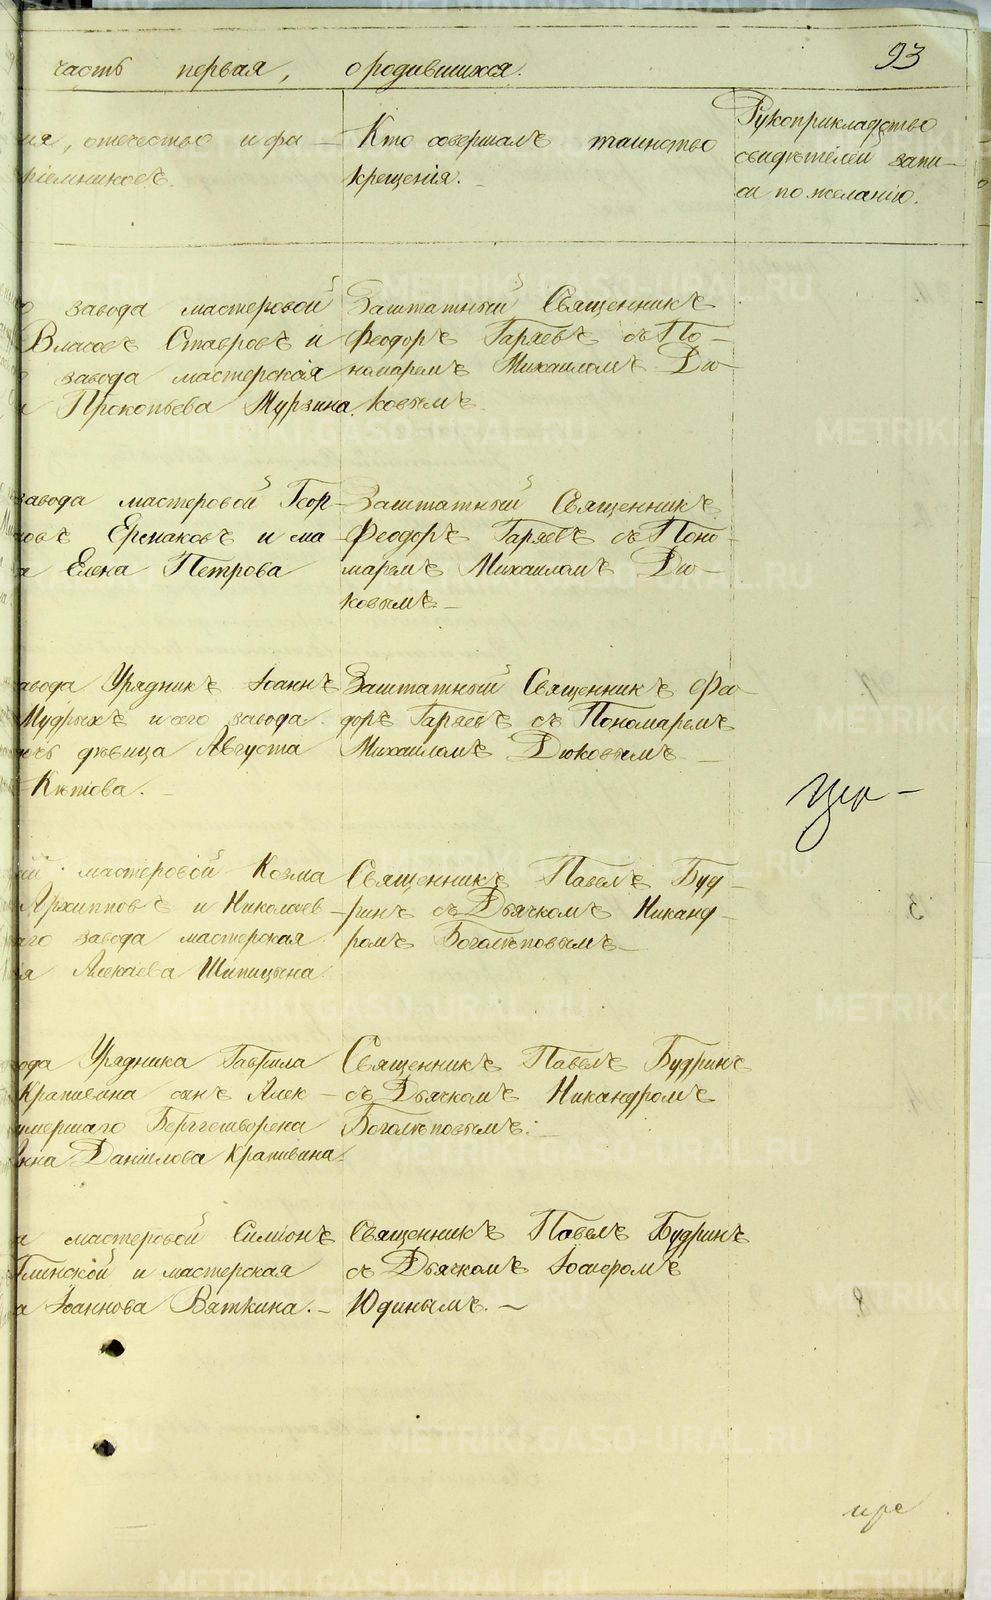 93
часть первая, о родившихся.
ия, отечество и фа-
ріемниковъ.
Кто совершалъ таинство
крещенія.
Рукоприкладство
свидѣтелей запи-
си по желанію.
завода мастеровой
Власовъ Ставровъ и
завода мастерская
Прокопьева Мурзина.
Заштатный Священникъ
Феодоръ Гаряевъ съ По-
номаремъ Михаиломъ Дю-
ковымъ.
завода мастеровой Геор-
Ермаковъ и ма-
Елена Петрова
Заштатный Священникъ
Феодоръ Гаряевъ съ Поно-
маремъ Михаиломъ Дю-
ковымъ.
авода Урядникъ Іоаннъ
Мудрыхъ и сего завода
дѣвица Августа
Кѣтова.
Заштатный Священникъ Фео-
доръ Гаряевъ съ Пономаремъ
Михаиломъ Дюковымъ
мастеровой Козма
Архипповъ и Николаев-
аго завода мастерская
Алекѣева Шипицына.
Священникъ Павелъ Буд-
ринъ съ Дьячкомъ Никанд-
ромъ Боголѣповымъ
ода Урядника Гаврила
Крапивина сынъ Алек-
умершаго Берггешворена
Данилова Крапивина.
Священникъ Павелъ Будринъ
съ Дьячкомъ Никандромъ
Боголѣповымъ.
мастеровой Симіонъ
Глинской и мастерская
Іоаннова Вяткина.
Священникъ Павелъ Будринъ
съ Дьячкомъ Іосифомъ
Юдинымъ.
METRIKI.GASO-URAL.RU